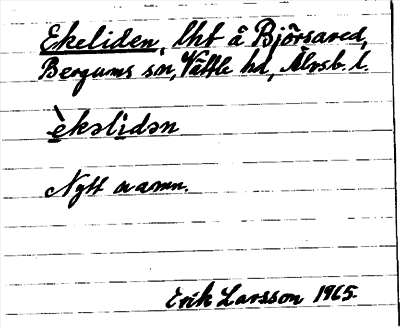 Ekeliden, lht å Björsared,
Bergums sn, Vättle hd, Älvsb. l.
è̱kəli̱dən
Nytt namn.
Erik Larsson 1965.